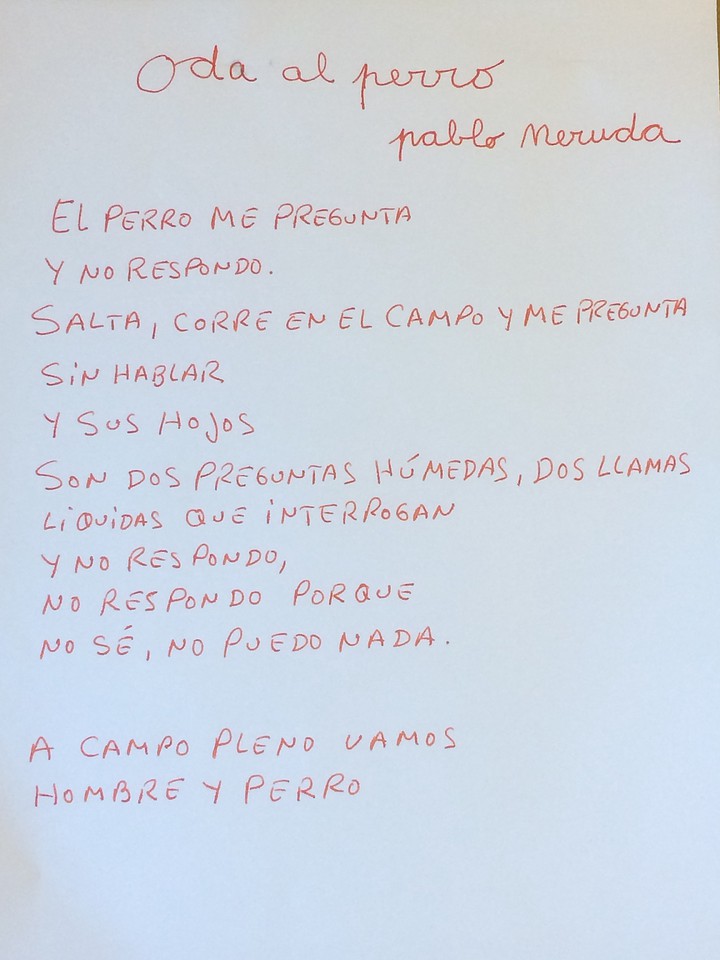 Oda al perro
pablo Neruda
EL PERRO ME PREGUNTA
Y NO RESPONDO.
SALTA, CORRE EN EL CAMPO Y ME PREGUNTA
SIN HABLAR
Y SUS HOJOS
SON DOS PREGUNTAS HÚMEDAS, DOS LLAMAS
LIQUIDAS QUE INTERROGAN
Y NO RESPONDO,
NO RESPONDO PORQUE
NO SÉ, NO PUEDO NADA.
A CAMPO PLENO VAMOS
HOMBRE Y PERRO